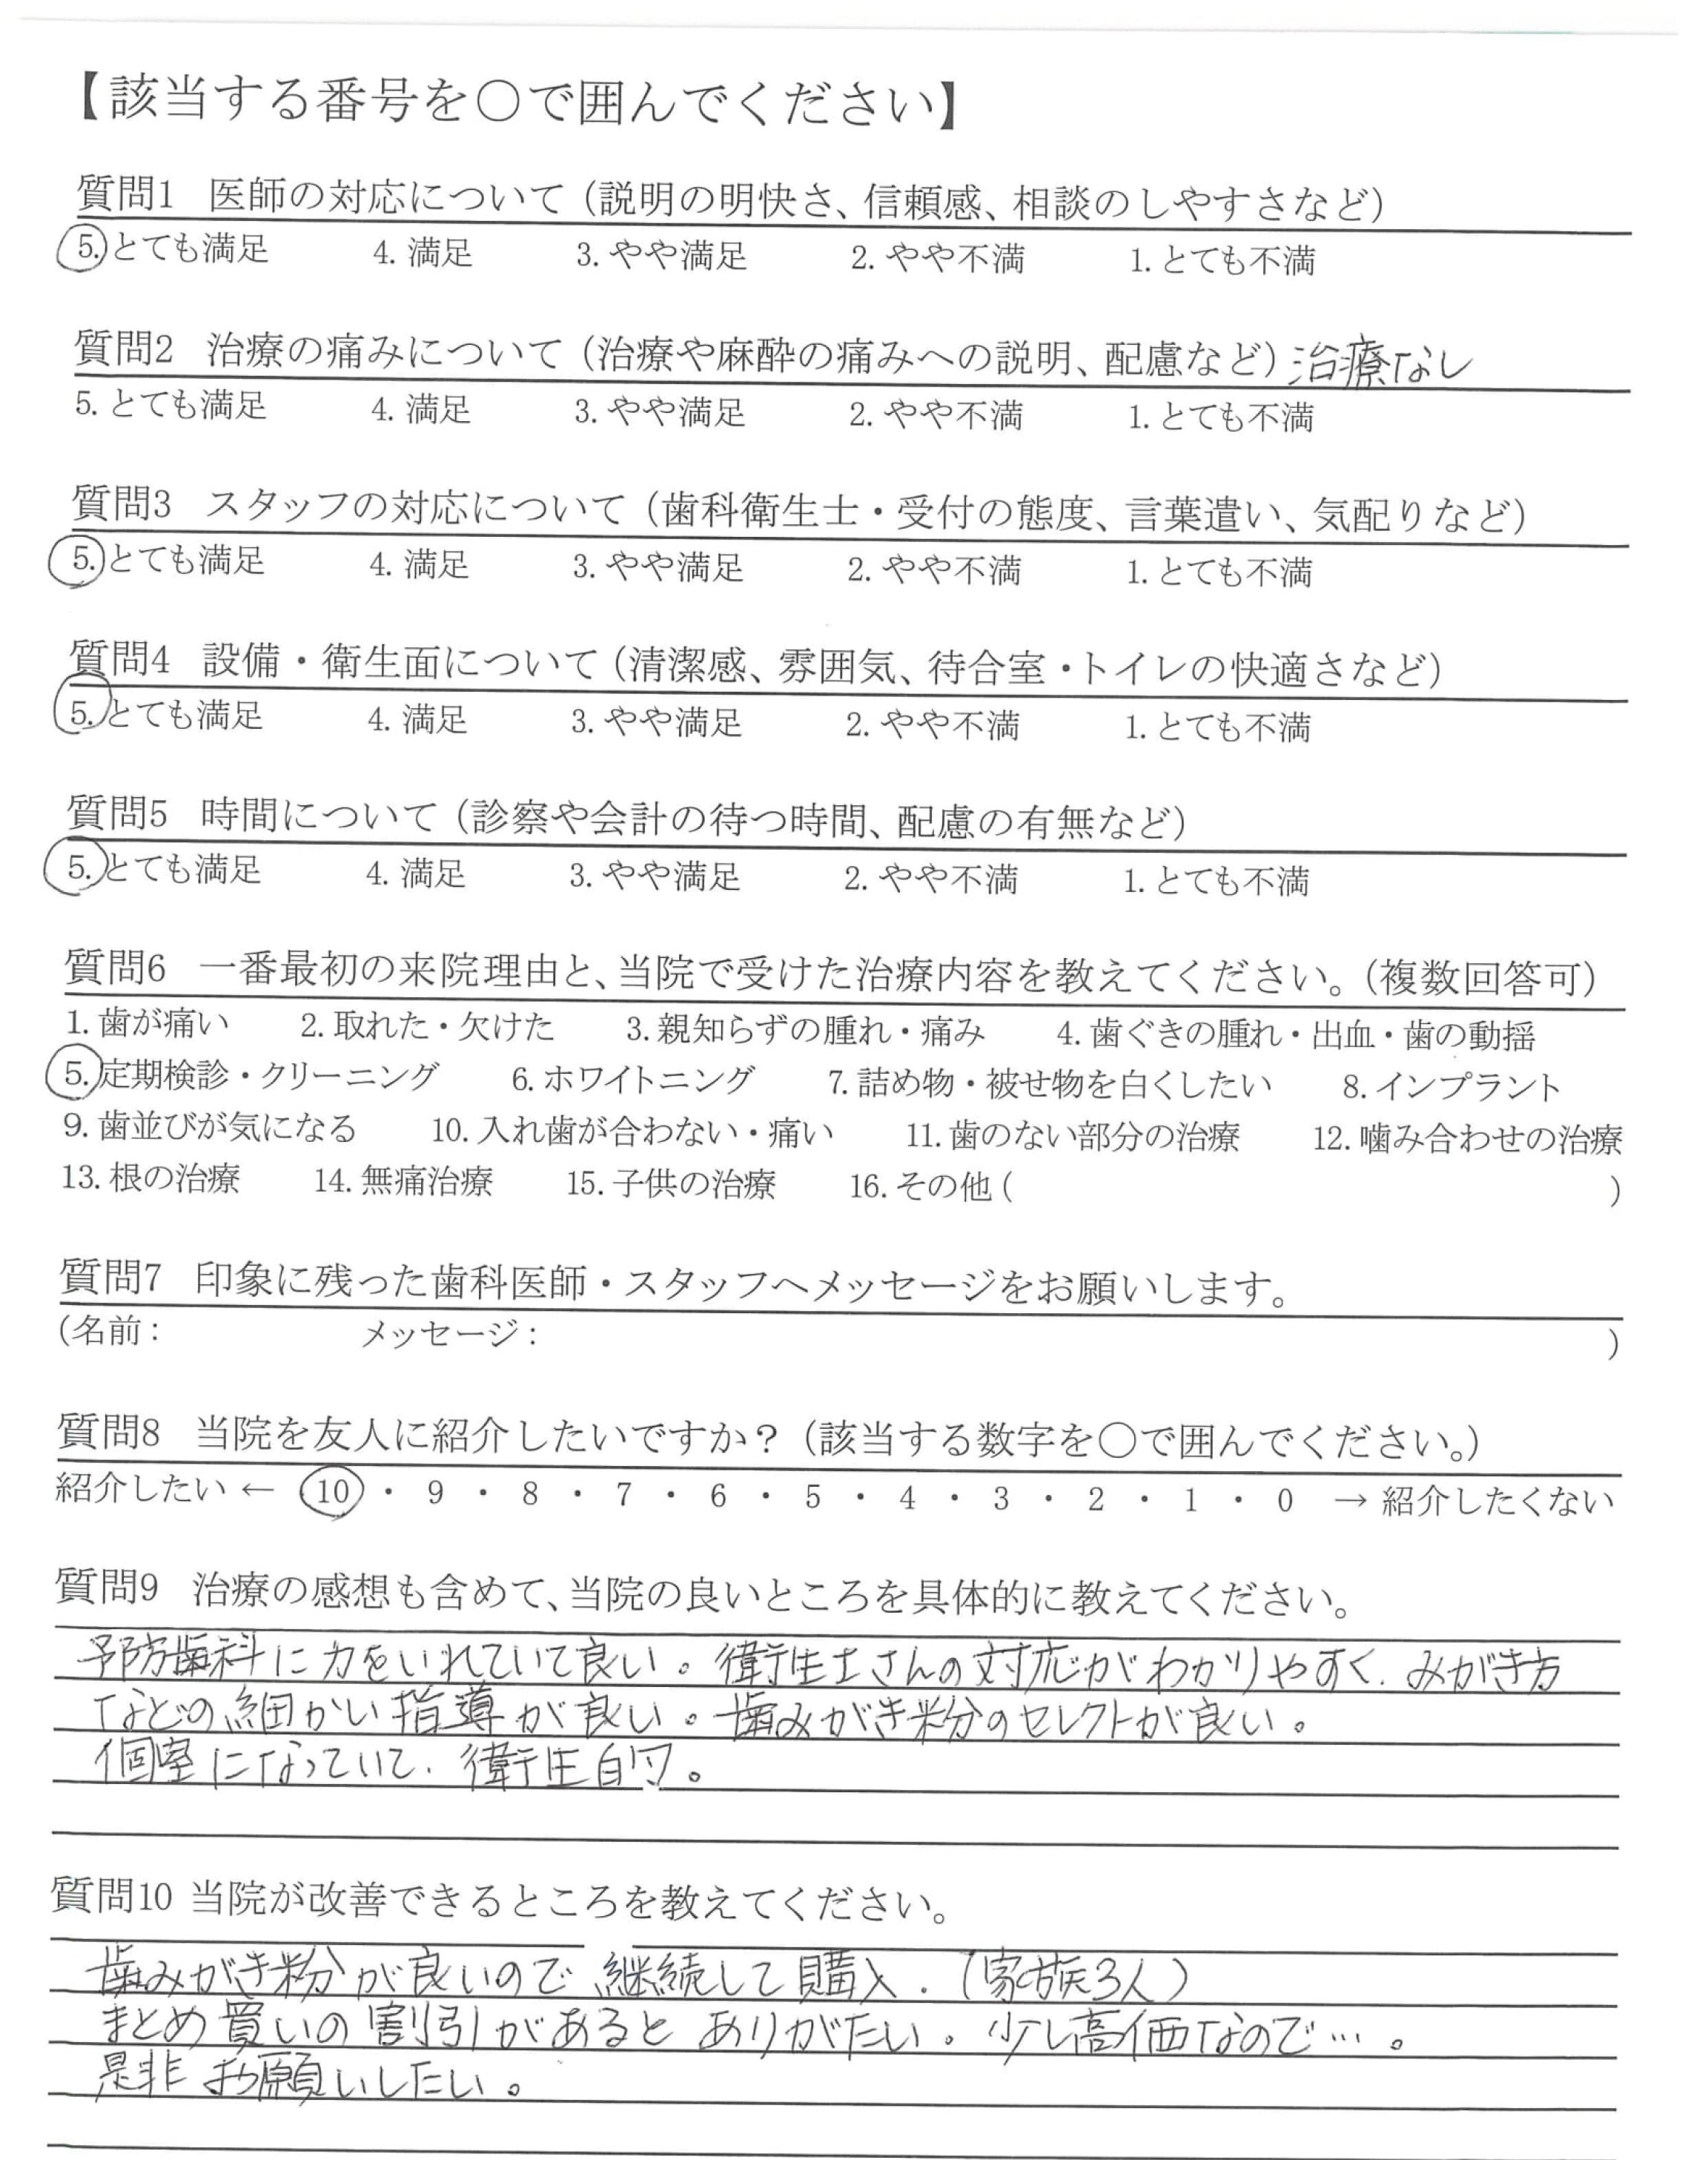 【該当する番号を〇で囲んでください】
質問1 医師の対応について（説明の明快さ、信頼感、相談のしやすさなど）
5. とても満足 4. 満足 3. やや満足 2. やや不満 1. とても不満
質問2 治療の痛みについて（治療や麻酔の痛みへの説明、配慮など）治療なし
5. とても満足 4. 満足 3. やや満足 2. やや不満 1. とても不満
質問3 スタッフの対応について（歯科衛生士・受付の態度、言葉遣い、気配りなど）
5. とても満足 4. 満足 3. やや満足 2. やや不満 1. とても不満
質問4 設備・衛生面について（清潔感、雰囲気、待合室・トイレの快適さなど）
5. とても満足 4. 満足 3. やや満足 2. やや不満 1. とても不満
質問5 時間について（診察や会計の待つ時間、配慮の有無など）
5. とても満足 4. 満足 3. やや満足 2. やや不満 1. とても不満
質問6 一番最初の来院理由と、当院で受けた治療内容を教えてください。（複数回答可）
1. 歯が痛い 2. 取れた・欠けた 3. 親知らずの腫れ・痛み 4. 歯ぐきの腫れ・出血・歯の動揺
5. 定期検診・クリーニング 6. ホワイトニング 7. 詰め物・被せ物を白くしたい 8. インプラント
9. 歯並びが気になる 10. 入れ歯が合わない・痛い 11. 歯のない部分の治療 12. 噛み合わせの治療
13. 根の治療 14. 無痛治療 15. 子供の治療 16. その他（ ）
質問7 印象に残った歯科医師・スタッフへメッセージをお願いします。
（名前： メッセージ： ）
質問8 当院を友人に紹介したいですか？（該当する数字を〇で囲んでください。）
紹介したい ← 10 ・ 9 ・ 8 ・ 7 ・ 6 ・ 5 ・ 4 ・ 3 ・ 2 ・ 1 ・ 0 → 紹介したくない
質問9 治療の感想も含めて、当院の良いところを具体的に教えてください。
予防歯科に力をいれていて良い。衛生士さんの対応がわかりやすく、みがき方
などの細かい指導が良い。歯みがき粉のセレクトが良い。
個室になっていて、衛生的。
質問10 当院が改善できるところを教えてください。
歯みがき粉が良いので継続して購入。（家族3人）
まとめ買いの割引があるとありがたい。少し高価なので…。
是非お願いしたい。